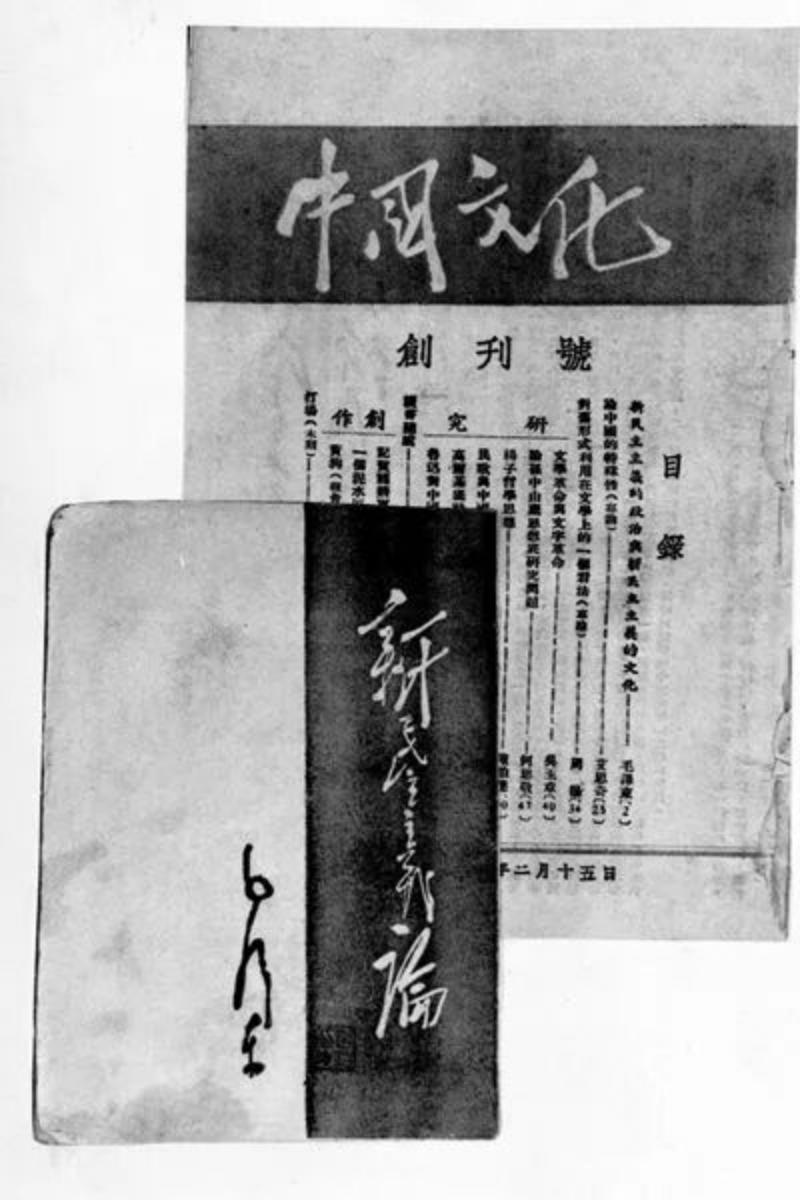 中國文化
創刊號
目錄
新民主主義的政治與新民主主義的文化——毛澤東(2)
論中國的特殊性(專論)——艾思奇(25)
對舊形式利用在文學上的一個看法(專論)——周揚(34)
研究
文學革命與文字革命——吳玉章(40)
論孫中山 思想 研究問題——何思敬(47)
楊子哲學思想
民歌與中
高爾基
魯迅對中
創作
一個泥水
年二月十五日
新民主主義論
毛澤東